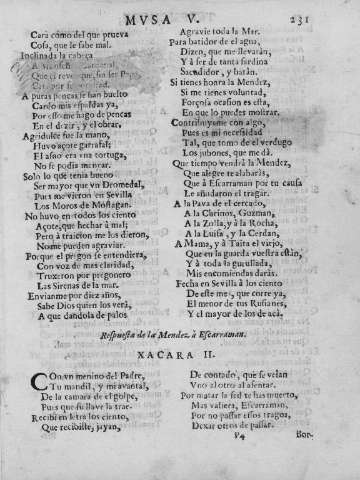 MVSA V.
231
Cara como del que prueva
Cosa, que le sabe mal.
Inclinada la cabeça
A
Que
A puras pencas se han buelto
Cardo mis espaldas ya,
Por esso me hago de pencas
En el dezir, y el obrar,
Agridulce fue la mano,
Huvo açote garrafal;
El asno era vna tortuga,
No se podia menear.
Solo lo que tenia bueno
Ser mayor que vn Dromedal,
Pues me vieron en Sevilla
Los Moros de Mostagan.
No huvo en todos los ciento
Açote, que hechar à mal;
Pero à traicion me los dieron,
No me pueden agraviar.
Porque el pregon se entendiera,
Con voz de mas claridad,
Truxeron por pregonero
Las Sirenas de la mar.
Envianme por diez años,
Sabe Dios quien los verà,
A que dandola de palos
Agravie toda la Mar.
Para batidor de el agua,
Dizen, que me llevaràn,
Y à ser de tanta sardina
Sacudidor, y batàn.
Si tienes honra la Mendez,
Si me tienes voluntad,
Forçosa ocasion es esta,
En que lo puedes mostrar.
Contribuyeme con algo,
Pues es mi necesidad
Tal, que tomo de el verdugo
Los jubones, que me dà.
Que tiempo vendrà la Mendez,
Que alegre te alabaràs,
Que à Escarraman por tu causa
Le añudaron el tragar.
A la Pava de el cercado,
A la Chirinos, Guzman,
A la Zolla, y à la Rocha,
A la Luisa, y la Cerdan,
A Mama, y à Taita el viejo,
Que en la guarda vuestra estàn,
Y à toda la gurullada,
Mis encomiendas daràs.
Fecha en Sevilla à los ciento
De este mes, que corre ya,
El menor de tus Rufianes,
Y el mayor de los de acà.
Respuesta de la Mendez, à Escarraman.
XACARA II.
COn vn menino del Padre,
Tu mandil, y mi avantal,
De la camara de el golpe,
Pues que su llave la trae.
Recibi en letra los ciento,
Que recibiste, jayan,
De contado, que se velan
Vno al otro al asentar.
Por matar la sed te has muerto,
Mas valiera, Escarraman,
Por no passar essos tragos,
Dexar otros de passar.
V4
Bor-